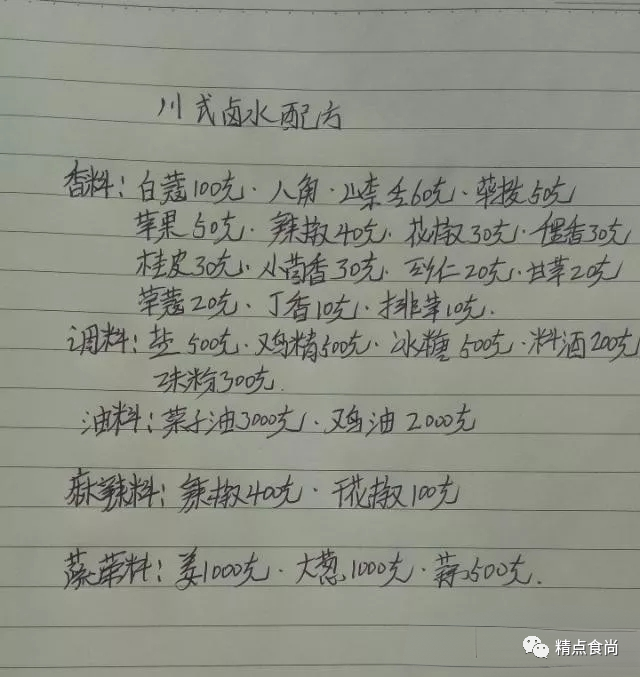 川式卤水配方
香料：白蔻100克·八角·山柰各60克·荜拨50克
草果50克·辣椒40克·花椒30克·香30克
桂皮30克·小茴香30克·砂仁20克·甘草20克
草蔻20克·丁香10克·排草10克.
调料：盐500克·鸡精500克·冰糖500克·料酒200克
味粉300克.
油料：菜子油3000克·鸡油2000克
麻辣料：辣椒400克·干花椒100克
蔬菜料：姜1000克·大葱1000克·蒜500克.
精点食尚